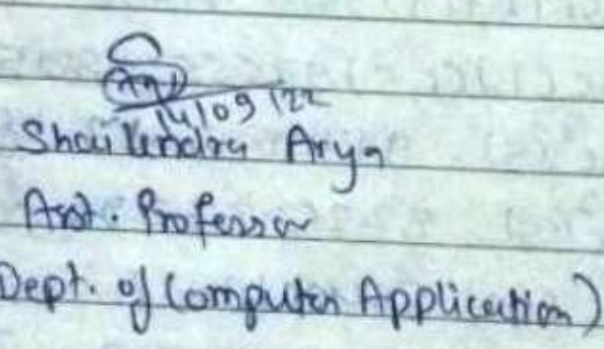 14/09/22
Shailendra Arya
Asst. Professor
Dept. of Computer Application)